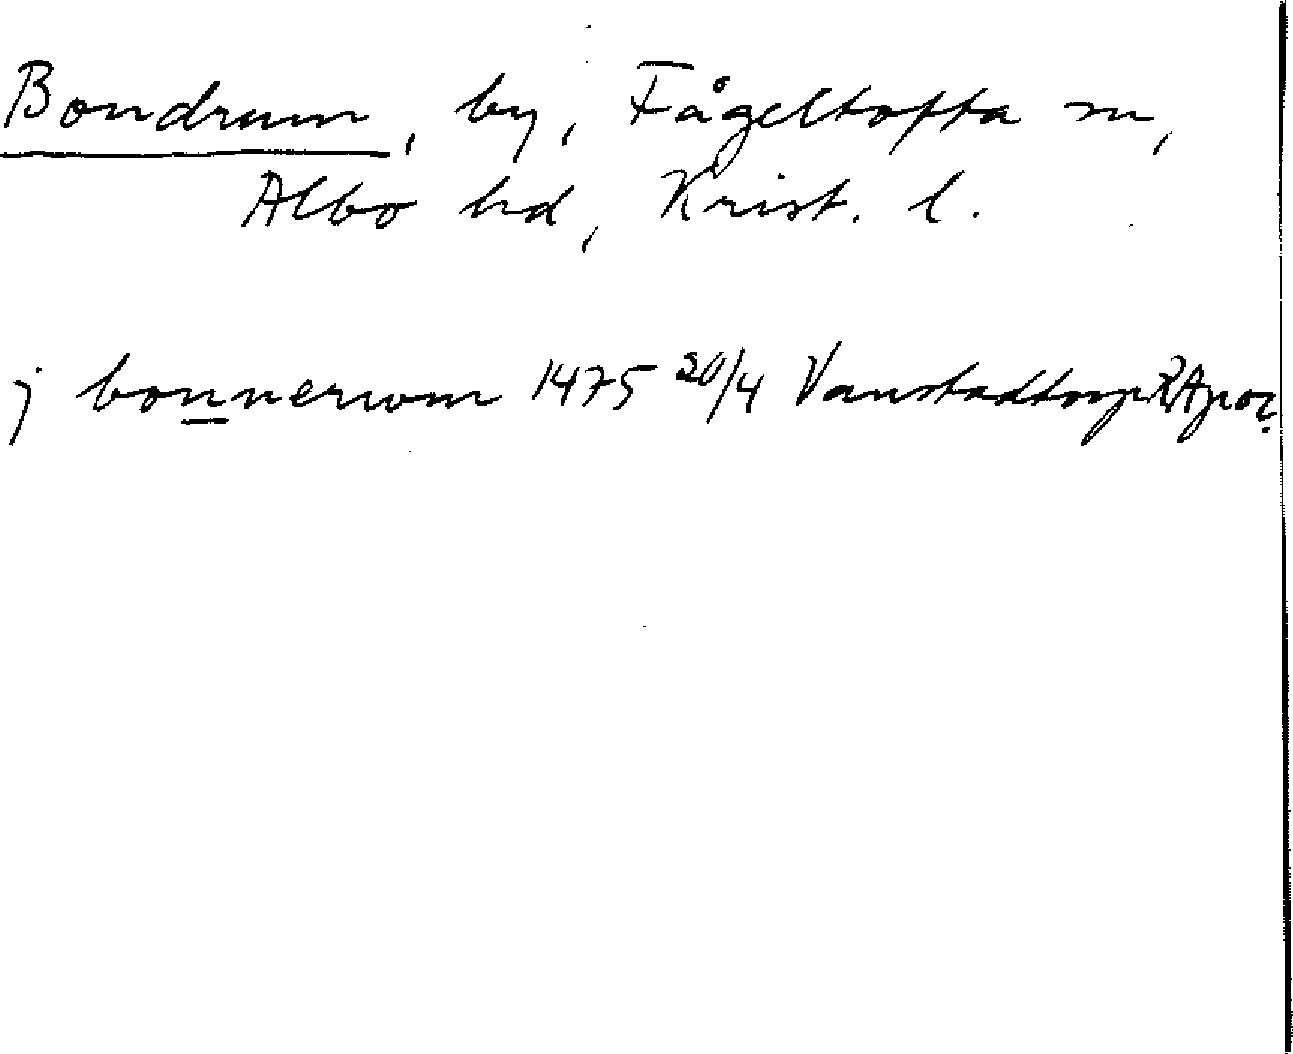 Bondrum, by, Fågeltofta sn,
Albo hd, Krist. l.
j bonnerwm 1475 20/4 Vanstadtorp RApor